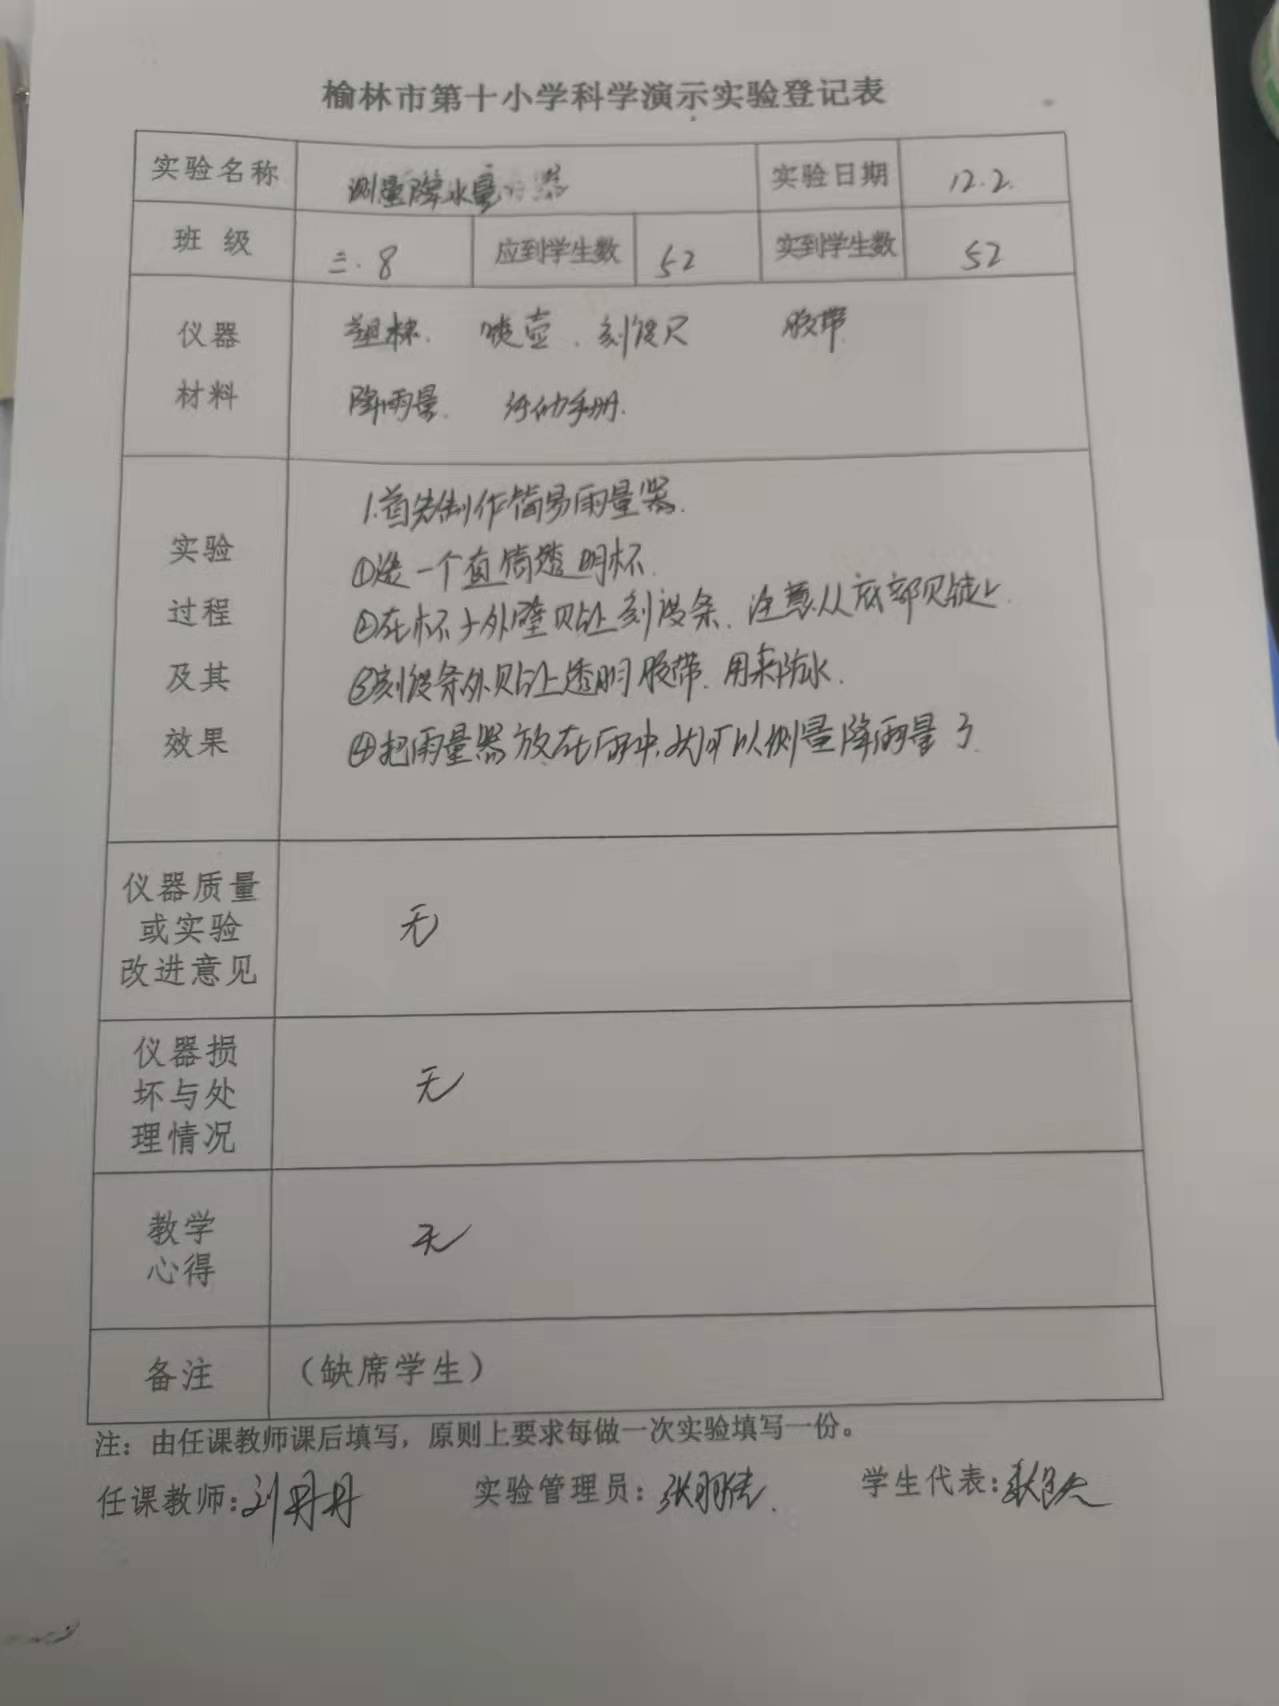 榆林市第十小学科学演示实验登记表
实验名称 测量降水量 实验日期 12.2.
班 级 三.8 应到学生数 52 实到学生数 52
仪器 塑杯. 喷壶. 刻度尺 胶带
材料 降雨量. 活动手册.
1.首先制作简易雨量器.
实验 ①选一个直筒透明杯.
过程 ②在杯子外壁贴上刻度条.注意从底部贴
及其 ③刻度条外贴上透明胶带.用来防水.
效果 ④把雨量器放在雨中,就可以测量降雨量了.
仪器质量
或实验 无
改进意见
仪器损
坏与处 无
理情况
教学 无
心得
备注 （缺席学生）
注：由任课教师课后填写，原则上要求每做一次实验填写一份。
任课教师:刘丹丹 实验管理员：张羽 学生代表: